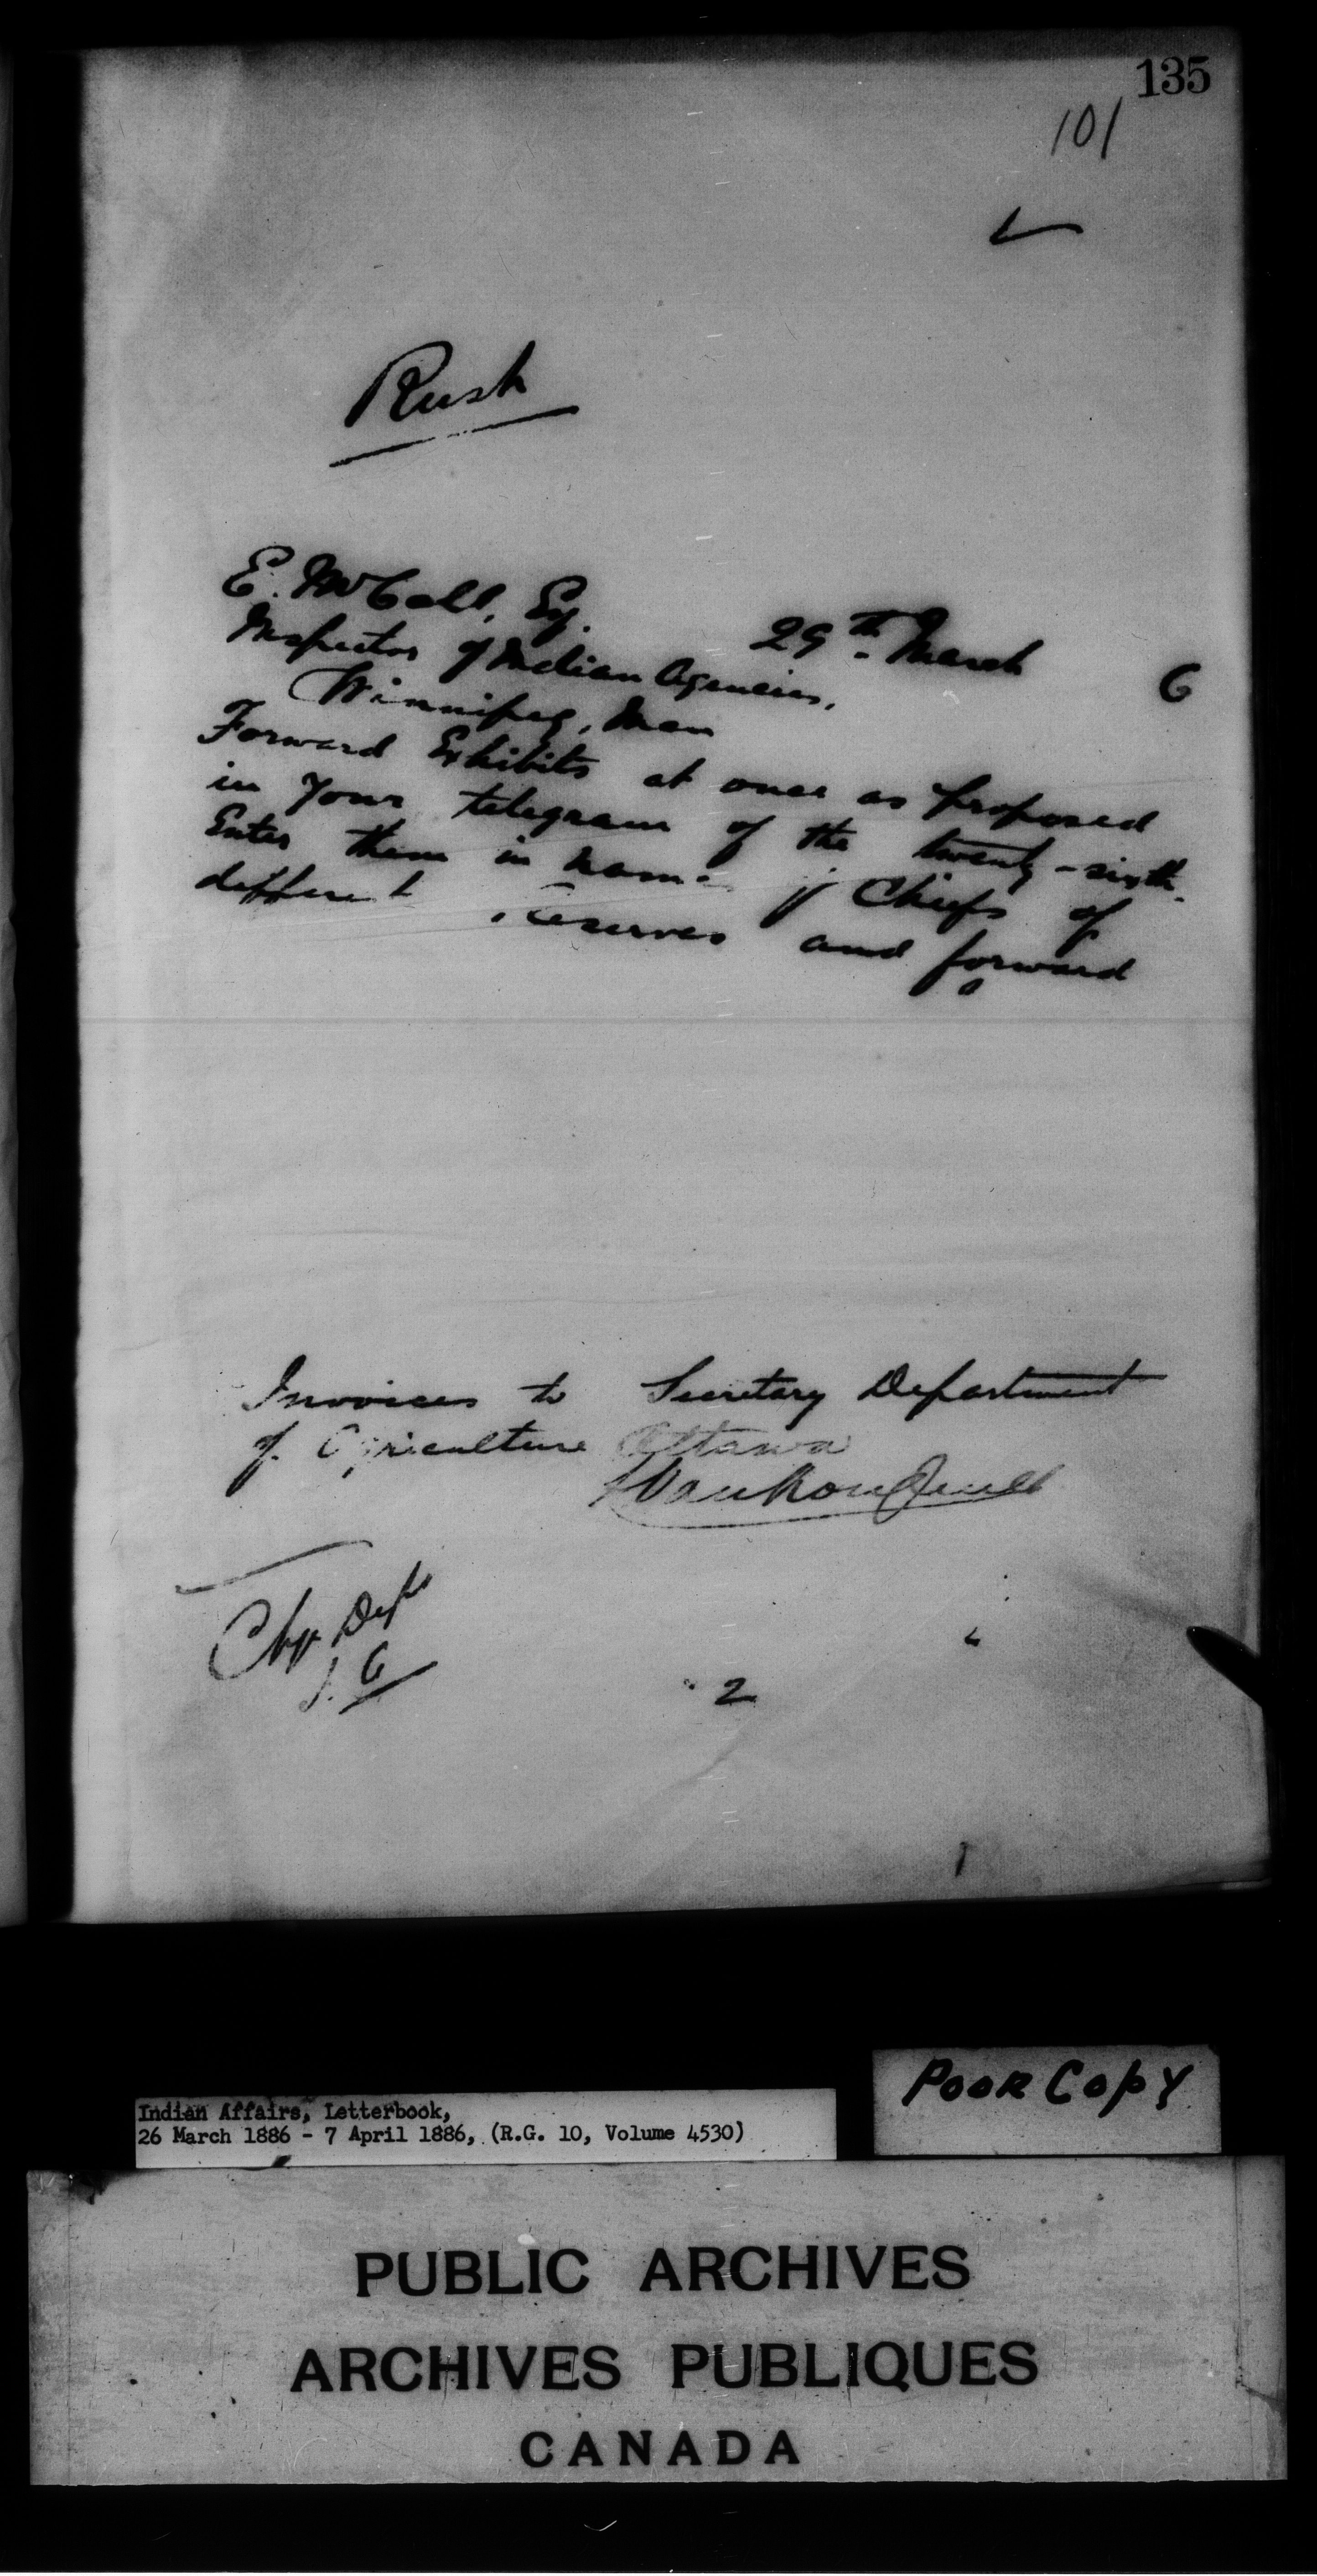 135
101
Rush
29th March 6
E. McColl, Esq.
Inspector of Indian Agencies,
Winnipeg, Man
Forward Exhibits at once as proposed
in your telegram of the twenty-sixth.
Enter them in name of Chiefs of
different reserves and forward
Invoices to Secretary Department
of Agriculture Ottawa
L VanKoughnet
Chg. Dept
I. A
2
Poor Copy
Indian Affairs, Letterbook,
26 March 1886 - 7 April 1886, (R.G. 10, Volume 4530)
PUBLIC ARCHIVES
ARCHIVES PUBLIQUES
CANADA